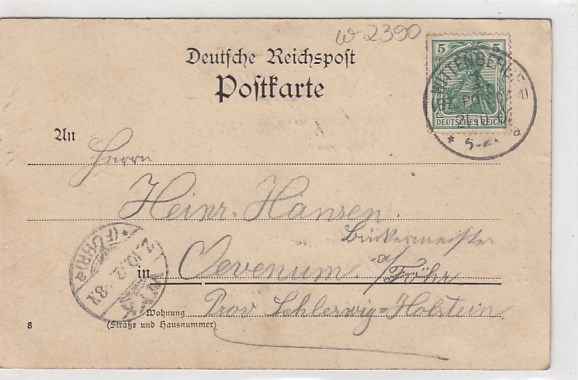 w 2390
Deutsche Reichspost
Postkarte
5 5
DEUTSCHES REICH
WITTENBERGE
An
Herrn
Heinr. Hansen
Bäckermeister
in Oevenum a/Föhr
Prov Schleswig-Holstein
Wohnung
(Straße und Hausnummer)
WYK
(FÖHR)
8